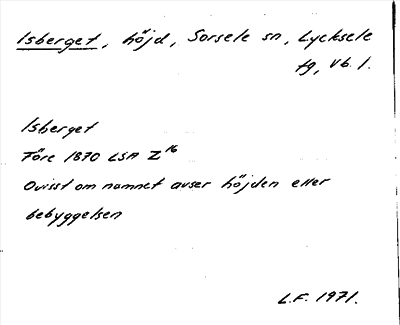 Isberget, höjd, Sorsele sn, Lycksele
tg, Vb. l.
Isberget
Före 1870 LSA Z16
Ovisst om namnet avser höjden eller
bebyggelsen
L.F. 1971.